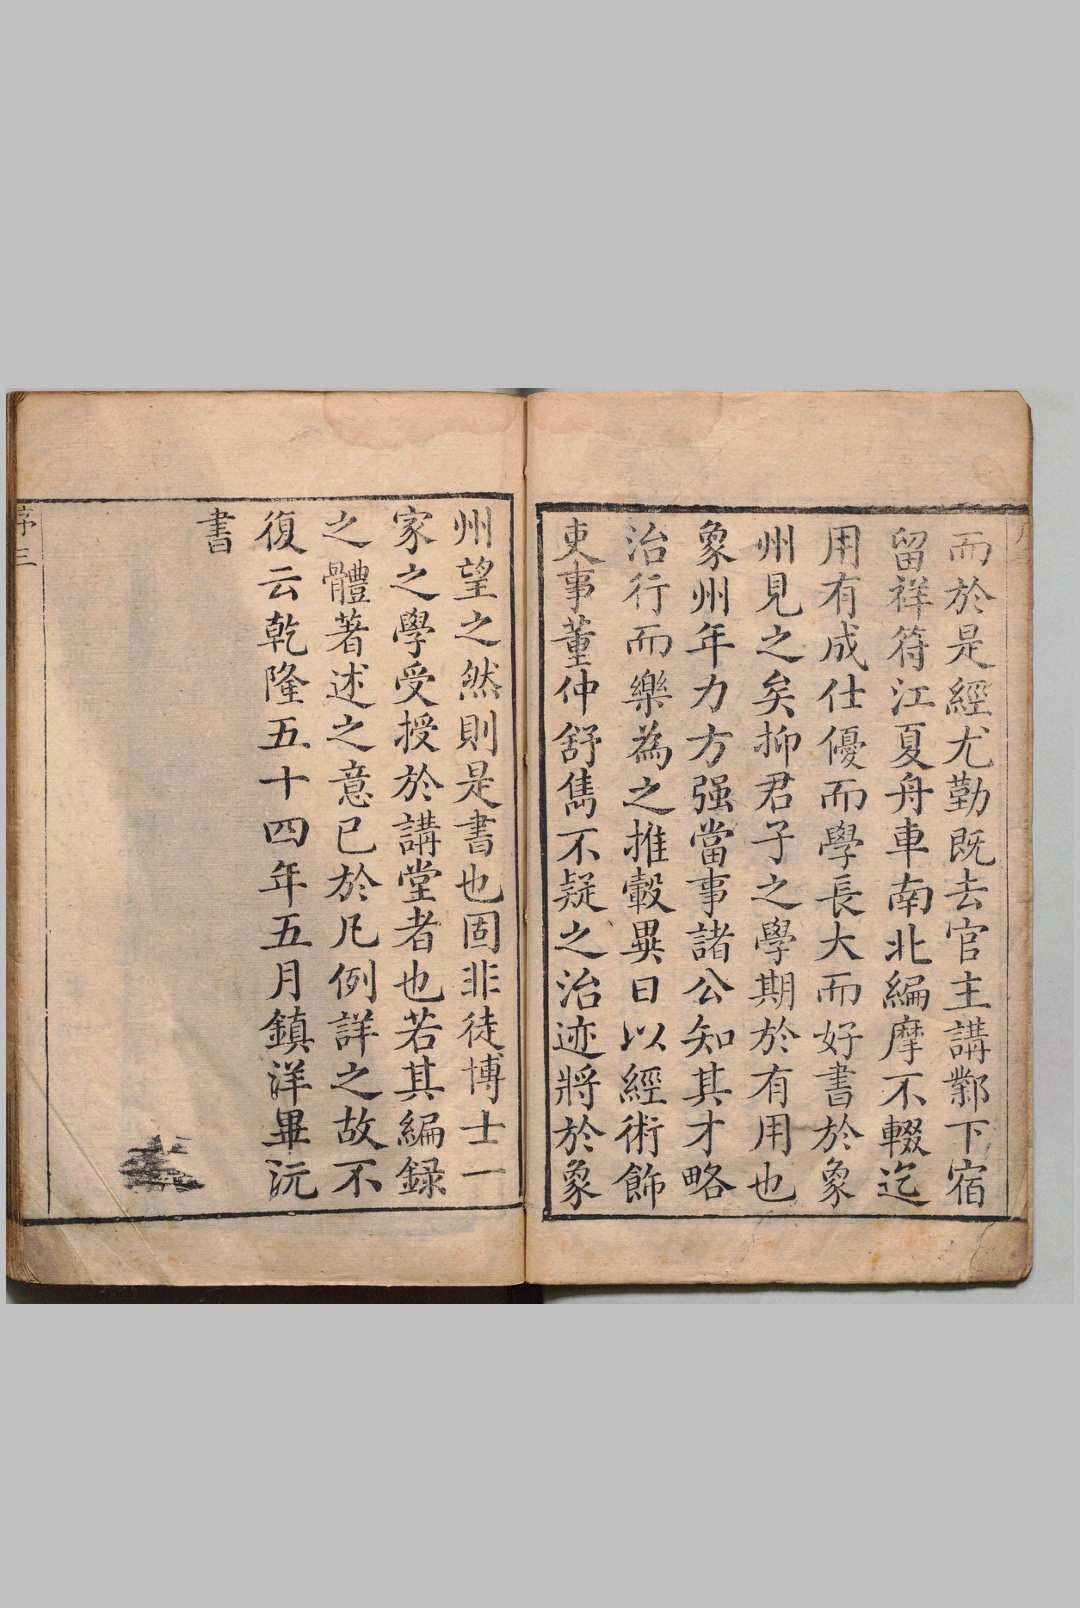 而於是經尤勤既去官主講鄴下宿
留祥符江夏舟車南北編摩不輟迄
用有成仕優而學長大而好書於象
州見之矣抑君子之學期於有用也
象州年力方强當事諸公知其才略
治行而樂為之推轂異日以經術飾
吏事董仲舒雋不疑之治迹將於象
州望之然則是書也固非徒博士一
家之學受授於講堂者也若其編録
之體著述之意已於凡例詳之故不
復云乾隆五十四年五月鎮洋畢沅
書
序三